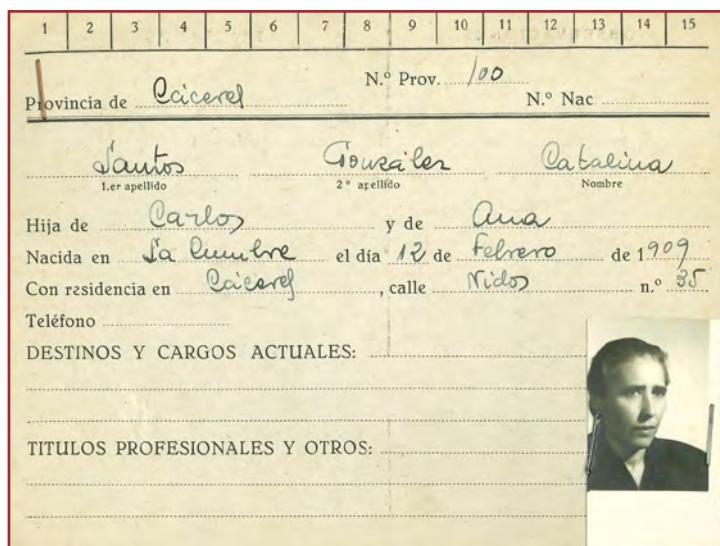 1 2 3 4 5 6 7 8 9 10 11 12 13 14 15
Provincia de Cáceres N.º Prov. 100 N.º Nac.
Santos González Catalina
1.er apellido 2º apellido Nombre
Hija de Carlos y de Ana
Nacida en La Cumbre el día 12 de Febrero de 1909
Con residencia en Cáceres, calle Nidos n.º 35
Teléfono
DESTINOS Y CARGOS ACTUALES:
TITULOS PROFESIONALES Y OTROS: